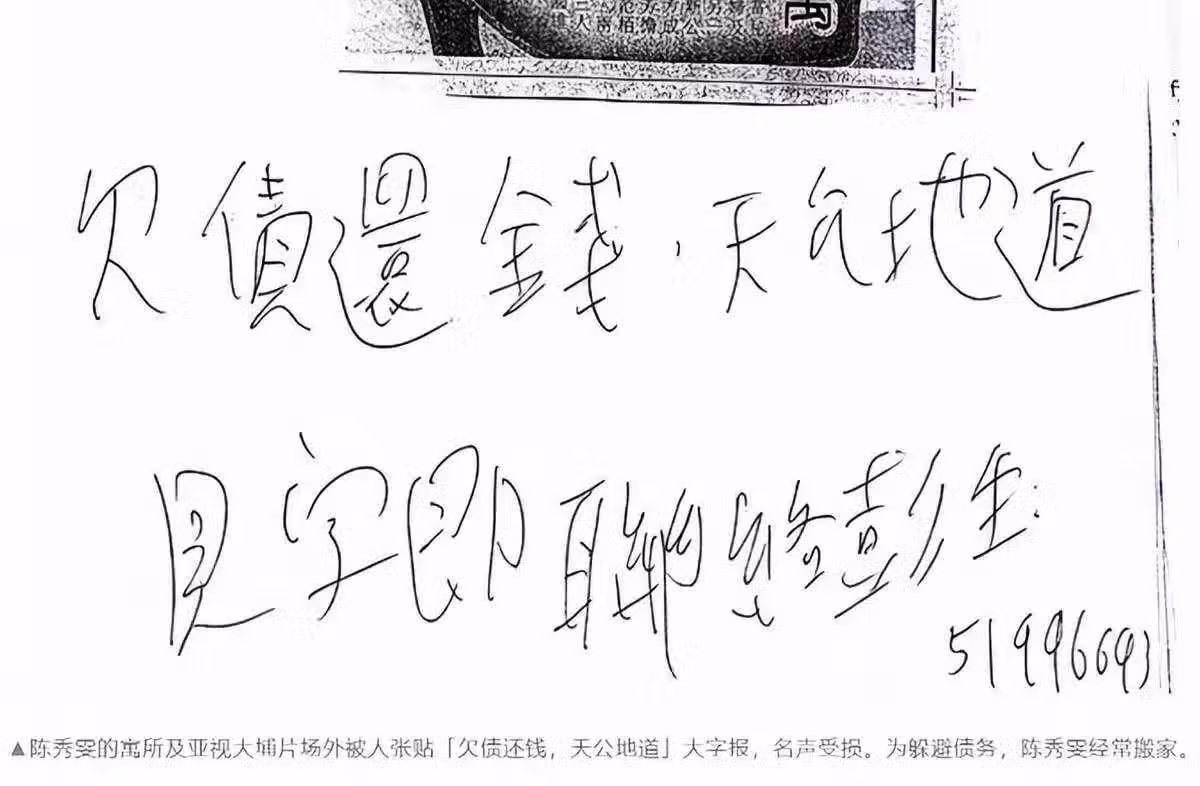 欠債還錢，天公地道
見字即聯絡彭生：
51996693
▲陈秀雯的寓所及亚视大埔片场外被人张贴「欠债还钱，天公地道」大字报，名声受损。为躲避债务，陈秀雯经常搬家。